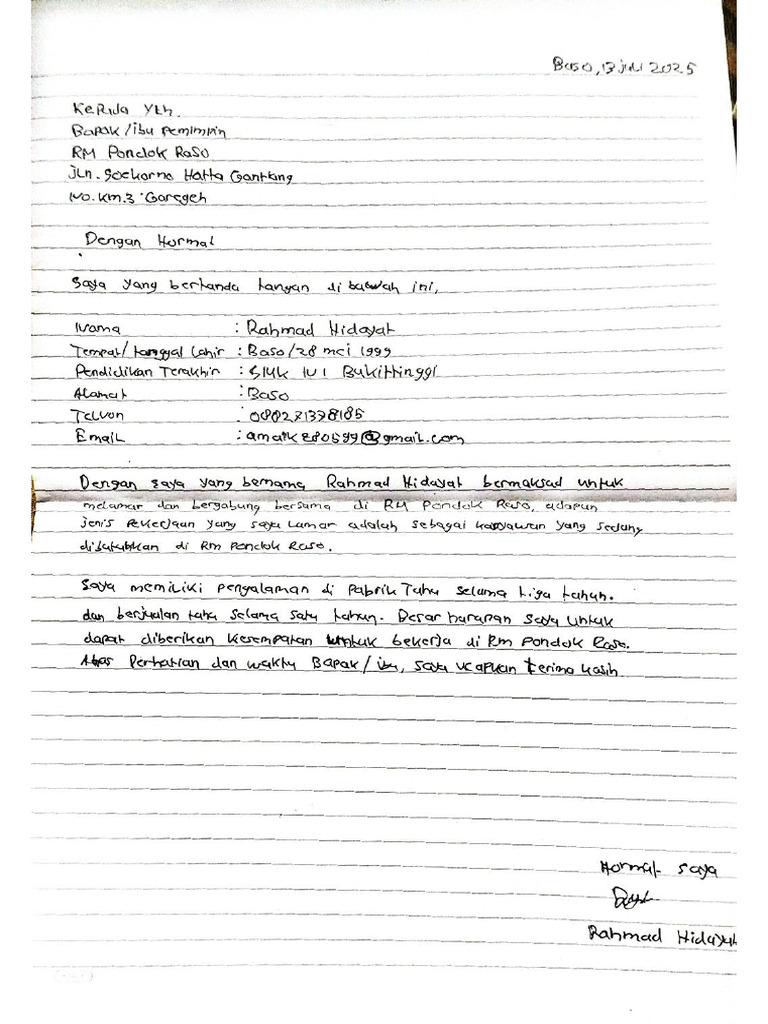 Baso, 13 juli 2025
Kepada Yth.
Bapak/ibu pemimpin
RM Pondok Raso
jln. Soekarno Hatta Gantiang
No. Km.3 Garegeh
Dengan Hormat
Saya yang bertanda tangan di bawah ini,
Nama : Rahmad Hidayat
Tempat/tanggal Lahir : Baso/28 mei 1999
Pendidikan Terakhir : SMK N 1 Bukittinggi
Alamat : Baso
Telvon : 080271378185
Email : amatk280599@gmail.com
Dengan saya yang bernama Rahmad Hidayat bermaksud untuk
melamar dan bergabung bersama di RM Pondok Raso, adapun
jenis Pekerjaan yang saya Lamar adalah sebagai karyawan yang sedang
dibutuhkan di Rm Pondok Raso.
Saya memiliki pengalaman di Pabrik Tahu selama tiga tahun.
dan berjualan tahu selama satu tahun. Besar harapan saya untuk
dapat diberikan kesempatan untuk bekerja di Rm Pondok Raso.
Atas Perhatian dan waktu Bapak/ibu, saya ucapkan terima kasih
Hormat saya
Rahmad Hidayat